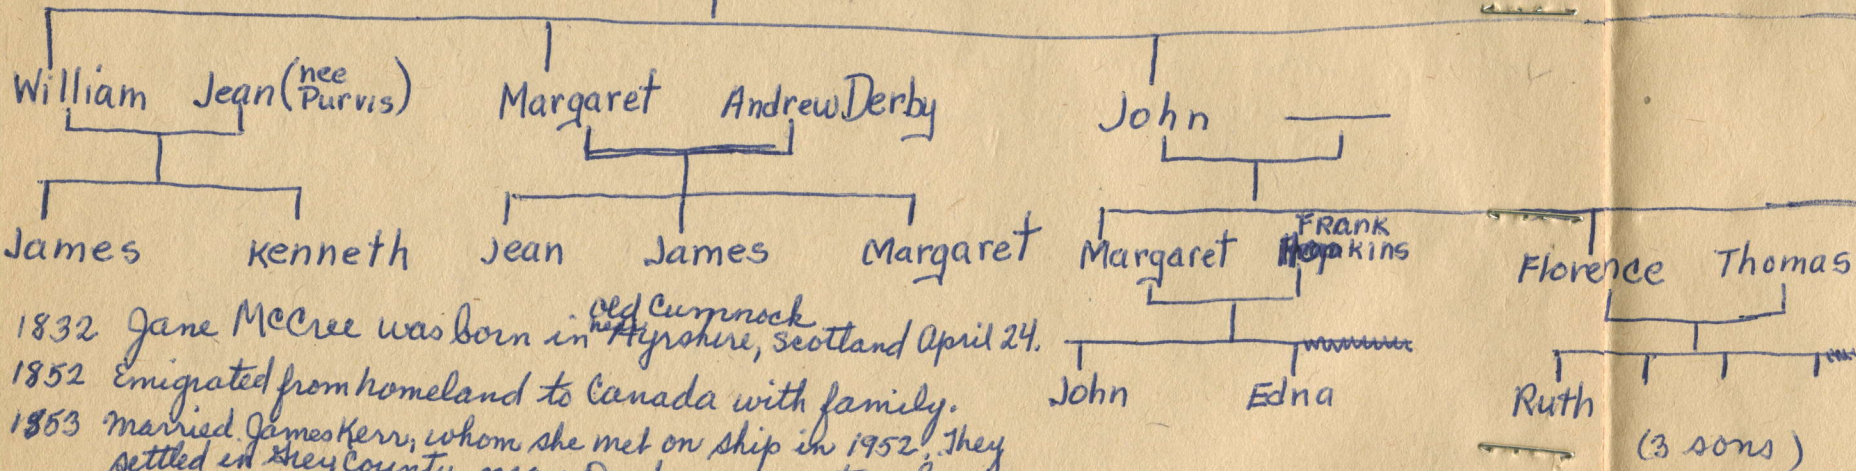 William Jean (nee Purvis) Margaret Andrew Derby John
James Kenneth Jean James Margaret Margaret Frank Hopkins Florence Thomas
1832 Jane McCree was born in Old Cumnock Ayrshire, Scotland April 24.
1852 Emigrated from homeland to Canada with family.
John Edna Ruth
1853 Married James Kerr, whom she met on ship in 1952. They
(3 sons)
settled in Grey County